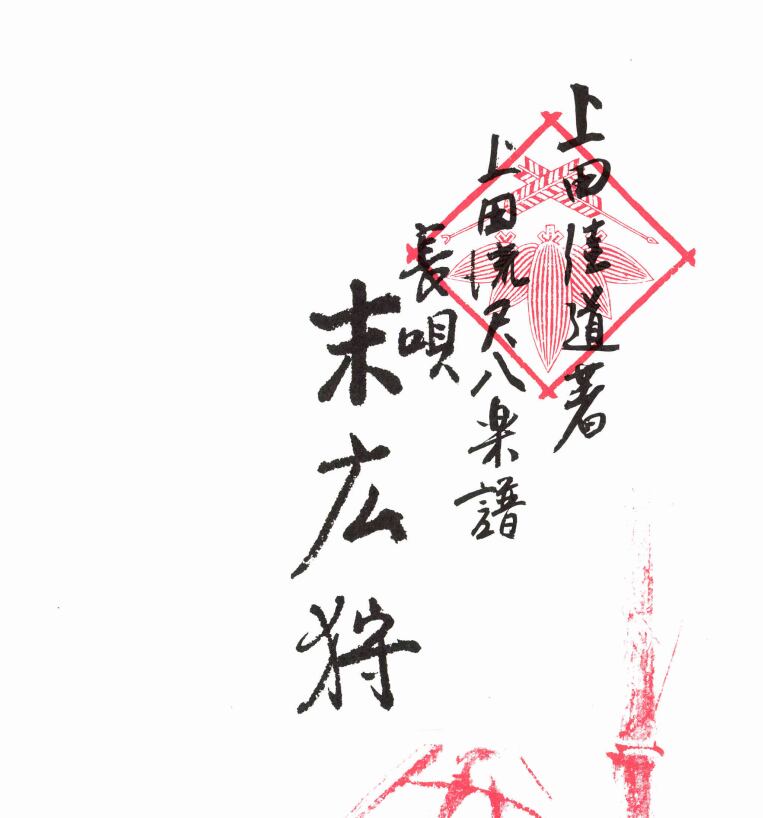 上田佳道著
上田流尺八楽譜
長唄
末広狩